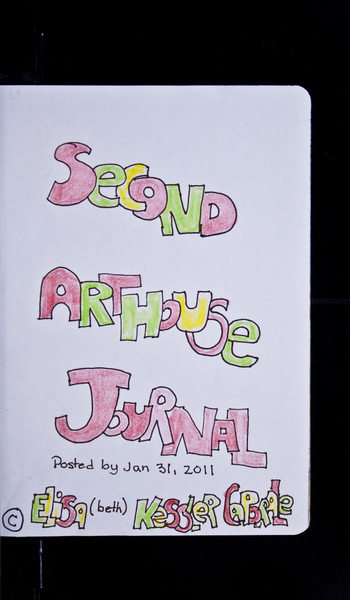 Second
ArtHouse
Journal
Posted by Jan 31, 2011
© Elisa (beth) Kessler Caporale